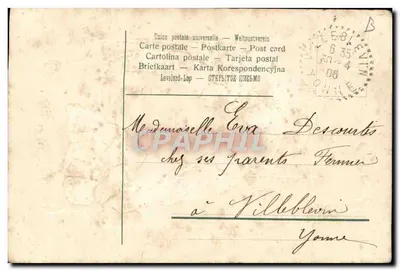 Union postale universelle — Weltpostverein
Carte postale — Postkarte — Post card
Cartolina postale — Tarjeta postal
Briefkaart — Karta Korespondencyjna
Levelező-Lap — ОТКРЫТОЕ ПИСЬМО
B
VILLEBLEVIN
6 35
4
06
YONNE
Mademoiselle Eva Descourtes
chez ses parents Fermier
à Villeblevin
Yonne